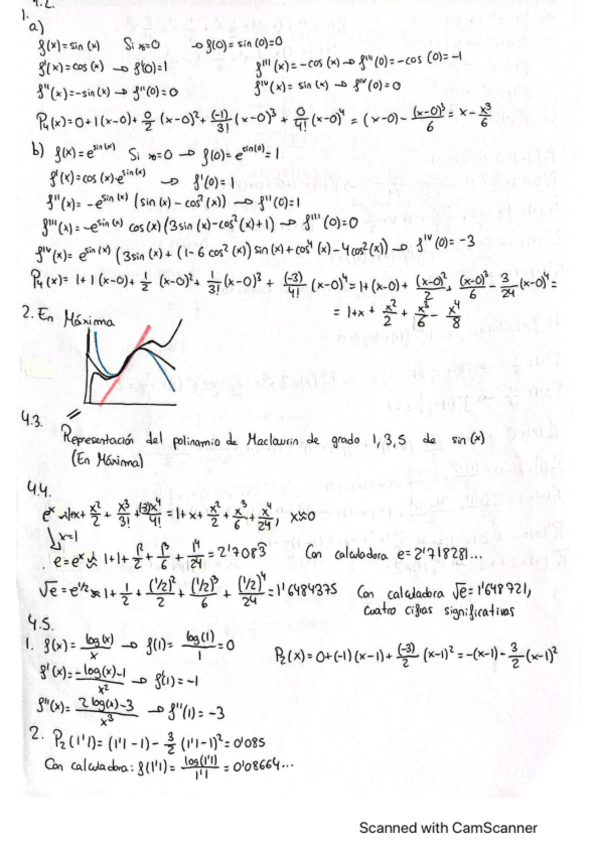 4.2.
1.
a)
f(x)=sin(x) Si x₀=0 → f(0)=sin(0)=0
f'(x)=cos(x) → f'(0)=1 f'''(x)=-cos(x) → f'''(0)=-cos(0)=-1
f''(x)=-sin(x) → f''(0)=0 f^IV(x)=sin(x) → f^IV(0)=0
P₄(x)=0+1(x-0)+0/2(x-0)²+(-1)/3!(x-0)³+0/4!(x-0)⁴=(x-0)-(x-0)³/6=x-x³/6
b) f(x)=e^sin(x) Si x₀=0 → f(0)=e^sin(0)=1
f'(x)=cos(x)·e^sin(x) → f'(0)=1
f''(x)=-e^sin(x)(sin(x)-cos²(x)) → f''(0)=1
f'''(x)=-e^sin(x) cos(x)(3sin(x)-cos²(x)+1) → f'''(0)=0
f^IV(x)=e^sin(x)(3sin(x)+(1-6cos²(x))sin(x)+cos⁴(x)-4cos²(x)) → f^IV(0)=-3
P₄(x)=1+1(x-0)+1/2(x-0)²+1/3!(x-0)³+(-3)/4!(x-0)⁴=1+(x-0)+(x-0)²/2+(x-0)³/6-3/24(x-0)⁴=
=1+x+x²/2+x³/6-x⁴/8
2. En Máxima
4.3.
Representación del polinomio de Maclaurin de grado 1,3,5 de sin(x)
(En Máxima)
4.4.
e^x≈1+x+x²/2+x³/3!+x⁴/4!=1+x+x²/2+x³/6+x⁴/24, x≈0
x=1
e=e^x≈1+1+1²/2+1³/6+1⁴/24=2'7083 Con calculadora e=2'718281...
√e=e^1/2≈1+1/2+(1/2)²/2+(1/2)³/6+(1/2)⁴/24=1'6484375 Con calculadora √e=1'648721,
cuatro cifras significativas
4.5.
1. f(x)=log(x)/x → f(1)=log(1)/1=0 P₂(x)=0+(-1)(x-1)+(-3)/2(x-1)²=-(x-1)-3/2(x-1)²
f'(x)=-log(x)-1/x² → f'(1)=-1
f''(x)=2log(x)-3/x³ → f''(1)=-3
2. P₂(1'1)=(1'1-1)-3/2(1'1-1)²=0'085
Con calculadora: f(1'1)=log(1'1)/1'1=0'08664...
Scanned with CamScanner